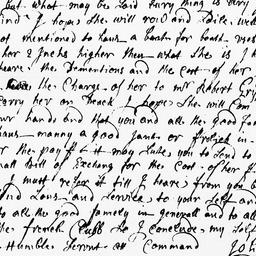 but what may be said every thing is very
I hope she will row and Sile well
not mentioned to haue a boat for both
her 2 Inches higher then what she is
heare the Dementions and the Cost of her
the Charge of her to mr Robert
Carry her on Deck I hope she will Com
our hands and that you and all the Good
haue manny a good Jant or frolick in
the pay if it may sute you to send
small bill of Exchang for the Cost of her
I must refer it till I heare from you
and Loue and Seruice to your Self and
to all the good famely in generall and to all
the french Clubb So I conclude my self
Humble Seruent att Command